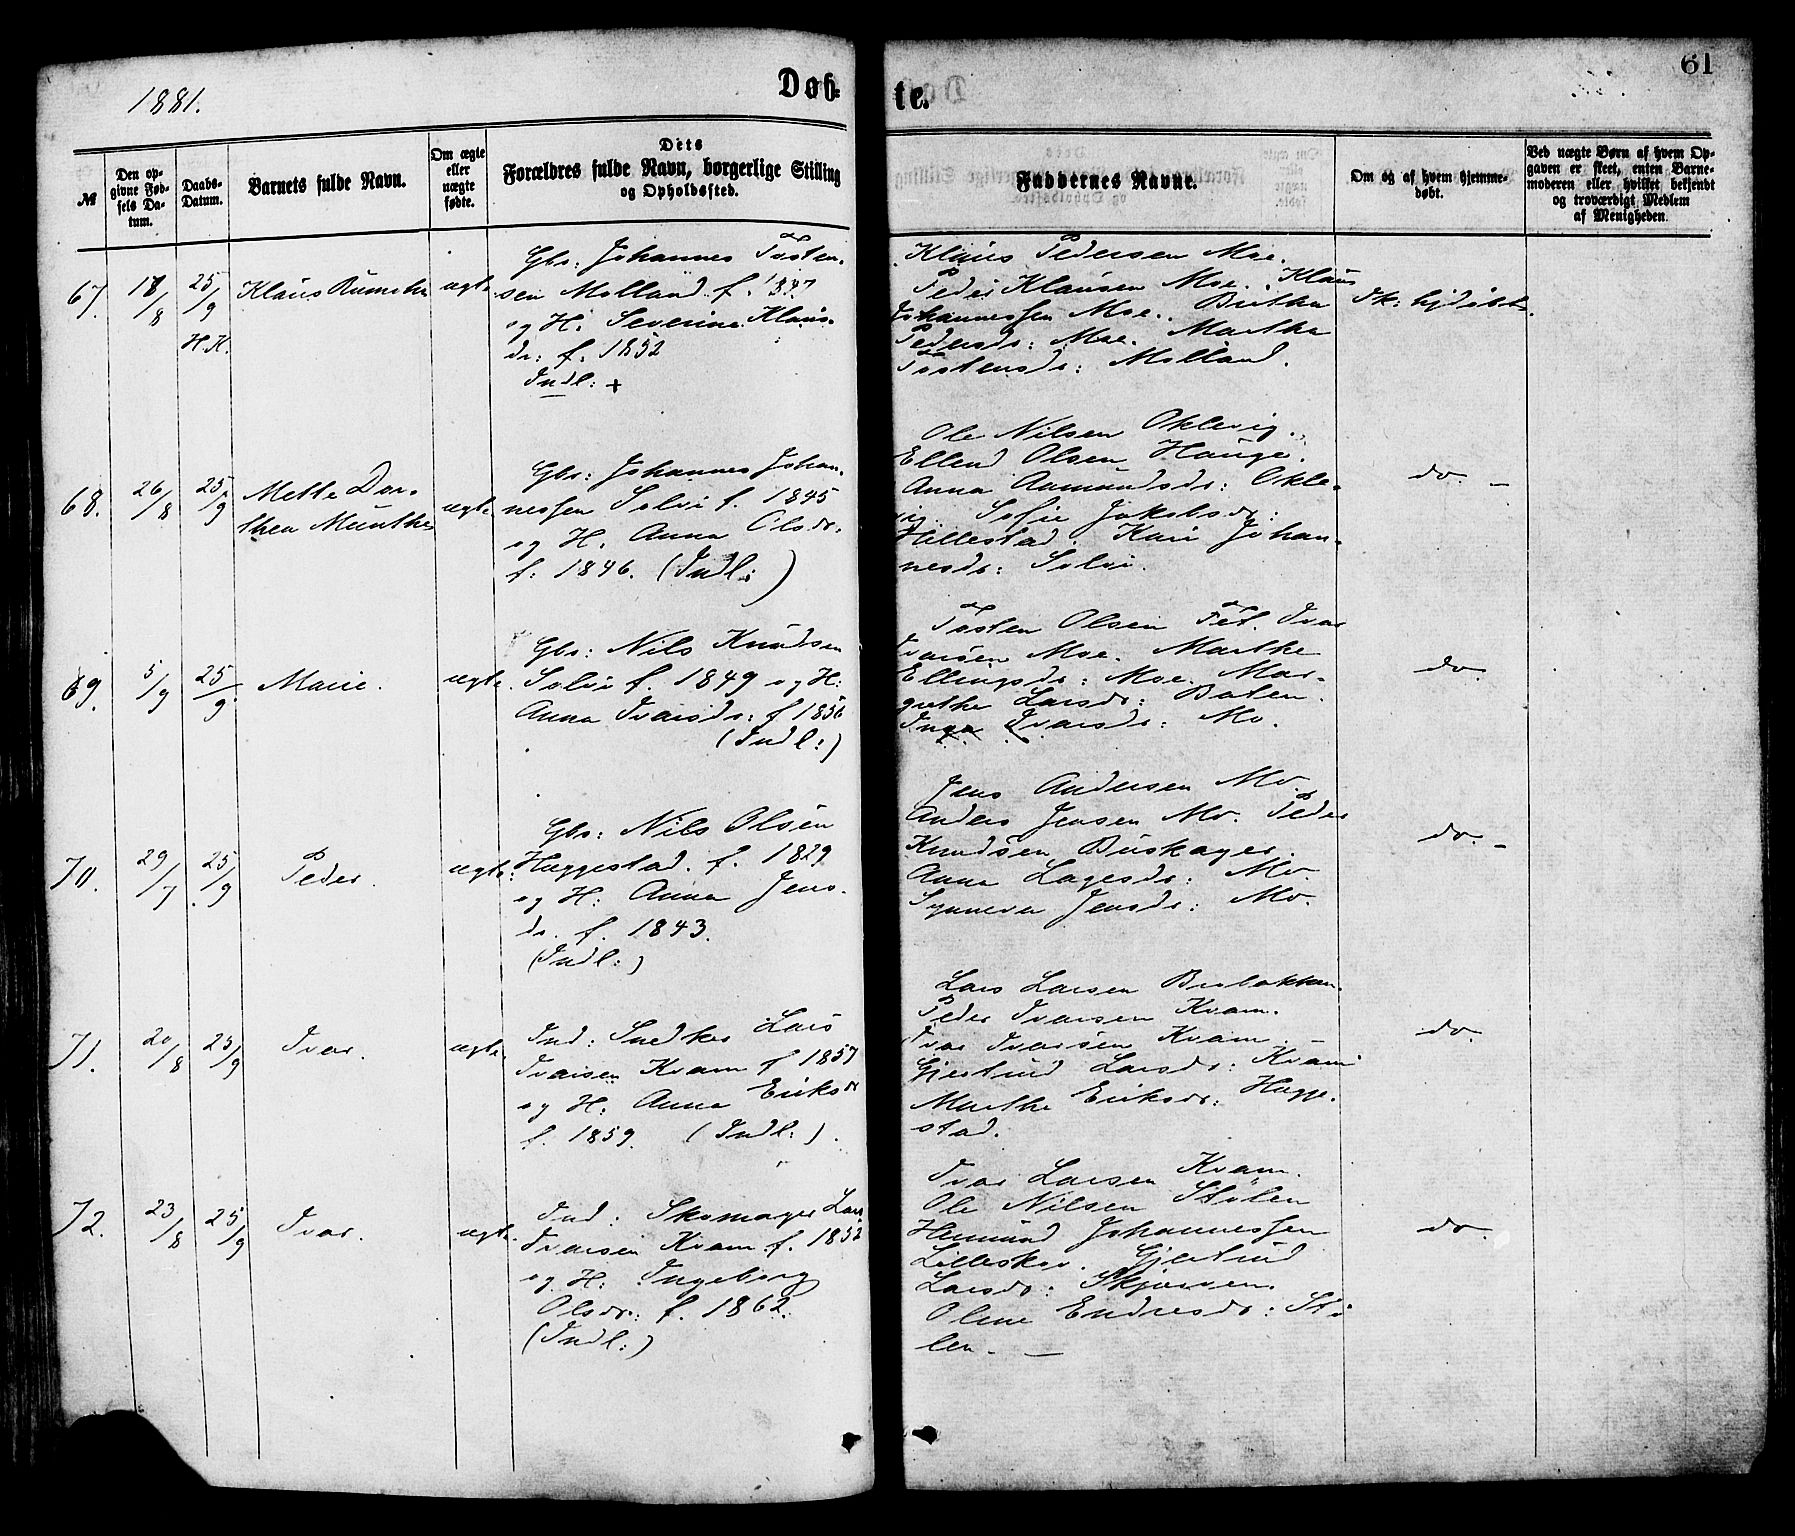 1881.
Døb-
te.
61
№
Den op-
givne Fød-
sels Da-
tum.
Daabs-
Datum.
Barnets fulde Navn.
Om ægte
eller
uægte
fødte.
Dets
Forældres fulde Navn, borgerlige Stilling
og Opholdssted.
Faddernes Navne.
Om og af hvem hjemme-
døbt.
Ved uægte Børn af hvem Op-
gaven er skeet, enten Barne-
moderen eller hvilket bekjendt
og troværdigt Medlem
af Menigheden.
67. 18/8 25/9 Klaus ægte
H.K.
Gbr: Johannes Tosten-
sen Molland f. 1847
og H. Severine Klaus-
dr: f. 1852
Indl: +
Klaus Pedersen Moe.
Peder Klausen Moe. Klaus
Johannessen Moe. Brithe
Pedersdr: Moe. Marthe
Tostensdr: Molland.
68. 26/8 25/9 Mette Dor-
thea Munthe ægte
Gbr: Johannes Johan-
nessen Solvi f. 1845
og H. Anna Olsdr.
f. 1846. (Indl:)
Ole Nilsen Oklevig.
Ellend Olsen Hauge.
Anna Aamundsdr: Okle-
vig. Sofie Jakobsdr:
Hillestad. Kari Johan-
nesdr: Solvi.
do. -
69. 5/9 25/9 Marie. ægte.
Gbr: Nils Knudsen
Solvi f. 1849 og H:
Anna Ivarsdr: f 1856
(Indl:)
Tosten Olsen Fet. Ivar
Ivarsen Moe. Marthe
Ellingsdr: Moe. Mar-
grethe Larsdr: Baten.
Inga Ivarsdr: Mo.
do.
70. 29/7 25/9 Peder. ægte.
Gbr: Nils Olsen
Hæggestad. f. 1829
og H: Anna Jens-
dr. f. 1843.
(Indl:)
Jens Andersen Mo.
Anders Jensen Mo. Peder
Knudsen Buskager.
Anna Lagesdr: Mo.
Synneva Jensdr: Mo.
do. -
71. 20/8 25/9 Ivar. ægte.
Ind: Snedker Lars
Ivarsen Kvam f 1857
og H. Anna Eriksdr
f. 1859. (Indl:).
Lars Larsen
Peder Ivarsen Kvam.
Ivar Ivarsen Kvam. -
Gjertrud Larsdr: Kvam
Marthe Eriksdr: Hægge-
stad.
do.
72. 23/8 25/9 Ivar. ægte.
Ind: Skomager Lars
Ivarsen Kvam f. 1852
og H: Ingeborg
Olsdr: f. 1862.
(Indl:)
Ivar Larsen Kvam.
Ole Nilsen Stølen
Hermund Johannessen
Lilleskov. Gjertrud
Larsdr: Skjærven.
Oline Endresdr: Stø
len. -
do.